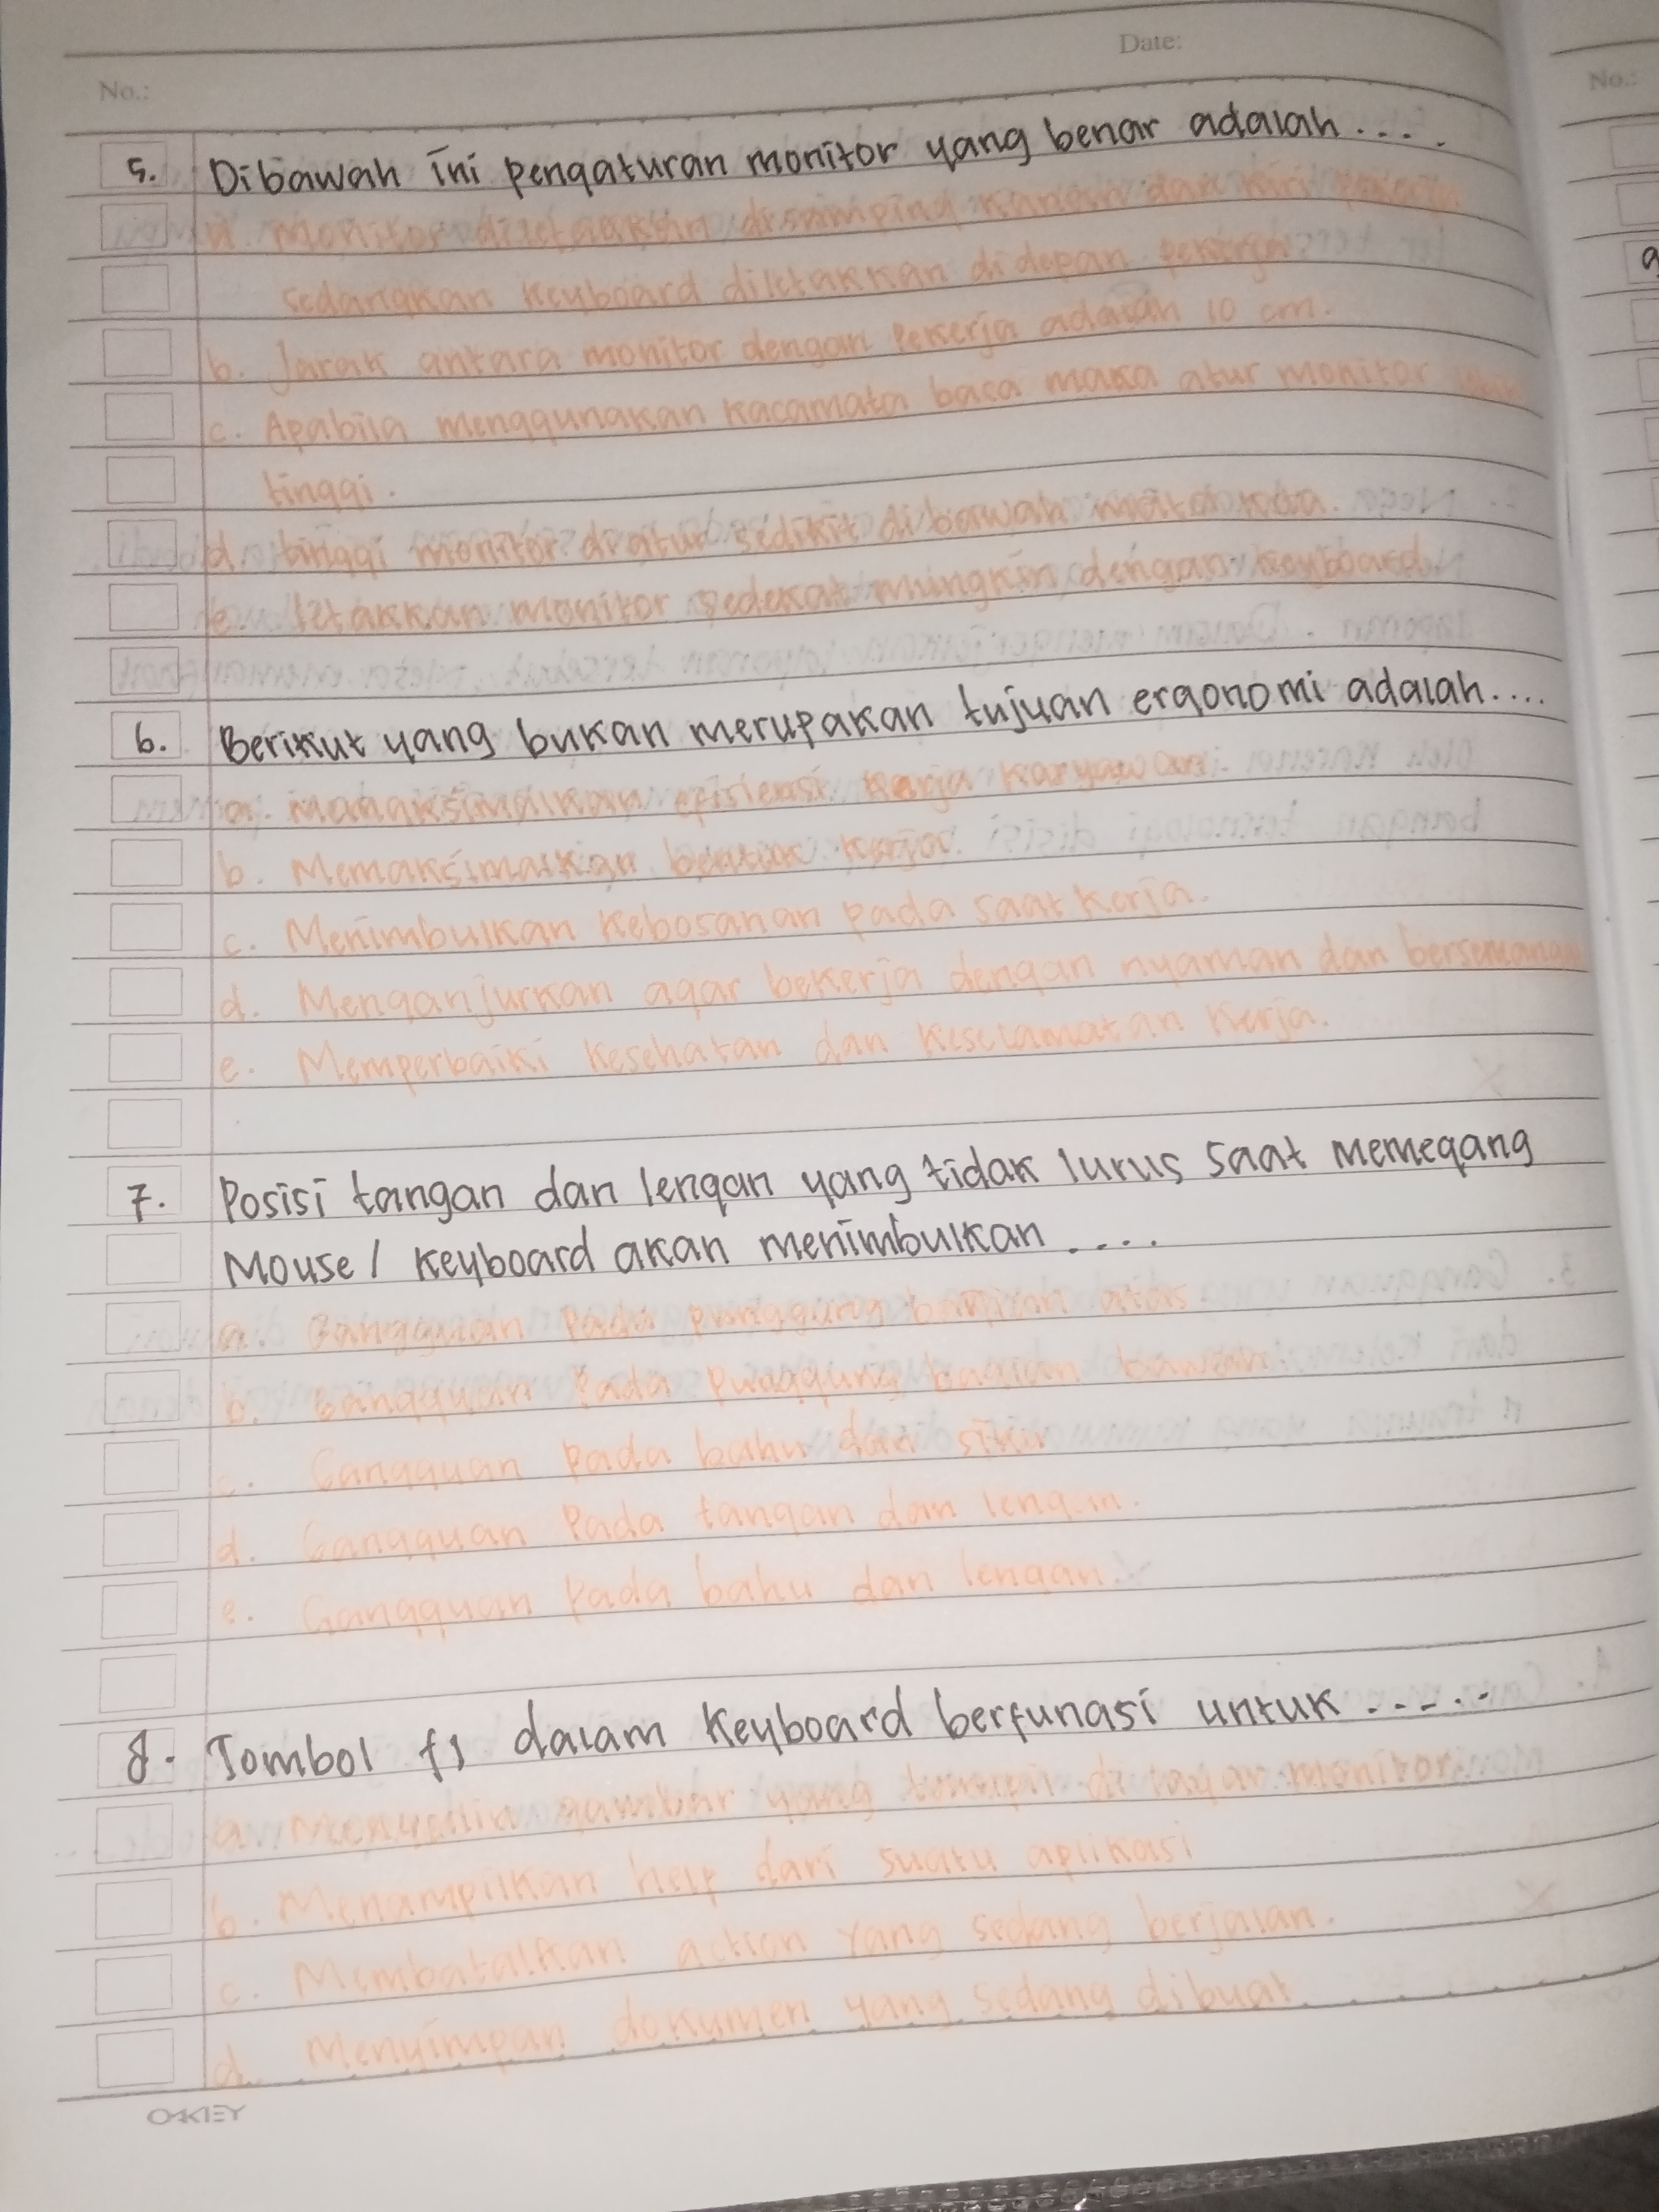 Date:
No.:
No.:
5. Dibawah ini pengaturan monitor yang benar adalah ....
a. Monitor diletakkan disamping kanan dan kiri pekerja
sedangkan keyboard diletakkan didepan pekerja
b. Jarak antara monitor dengan pekerja adalah 10 cm.
c. Apabila menggunakan kacamata baca maka atur monitor lebih
tinggi.
d. tinggi monitor diatur sedikit dibawah mata
e. letakkan monitor sedekat mungkin dengan keyboard
6. Berikut yang bukan merupakan tujuan ergonomi adalah....
a. Memaksimalkan efisiensi kerja karyawan
b. Memaksimalkan bentuk kerja.
c. Menimbulkan kebosanan pada saat kerja.
d. Menganjurkan agar bekerja dengan nyaman dan bersemangat
e. Memperbaiki kesehatan dan keselamatan kerja.
7. Posisi tangan dan lengan yang tidak lurus saat memegang
Mouse / keyboard akan menimbulkan ....
a. Gangguan pada punggung bagian atas
b. Gangguan pada punggung bagian bawah
c. Gangguan pada bahu dan sikir
d. Gangguan pada tangan dan lengan.
e. Gangguan pada bahu dan lengan.
8. Tombol f1 dalam keyboard berfungsi untuk .....
a. Menyalin gambar yang tampil di layar monitor
b. Menampilkan help dari suatu aplikasi
c. Membatalkan action yang sedang berjalan.
d. Menyimpan dokumen yang sedang dibuat
OAKLEY